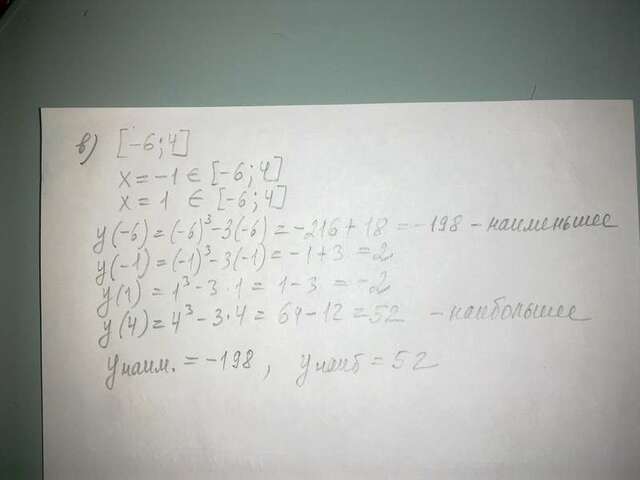 в) [-6;4]
x = -1 ∈ [-6;4]
x = 1 ∈ [-6;4]
y(-6) = (-6)³-3(-6) = -216+18 = -198 - наименьшее
y(-1) = (-1)³-3(-1) = -1+3 = 2
y(1) = 1³-3·1 = 1-3 = -2
y(4) = 4³-3·4 = 64-12 = 52 - наибольшее
yнаим. = -198, yнаиб = 52